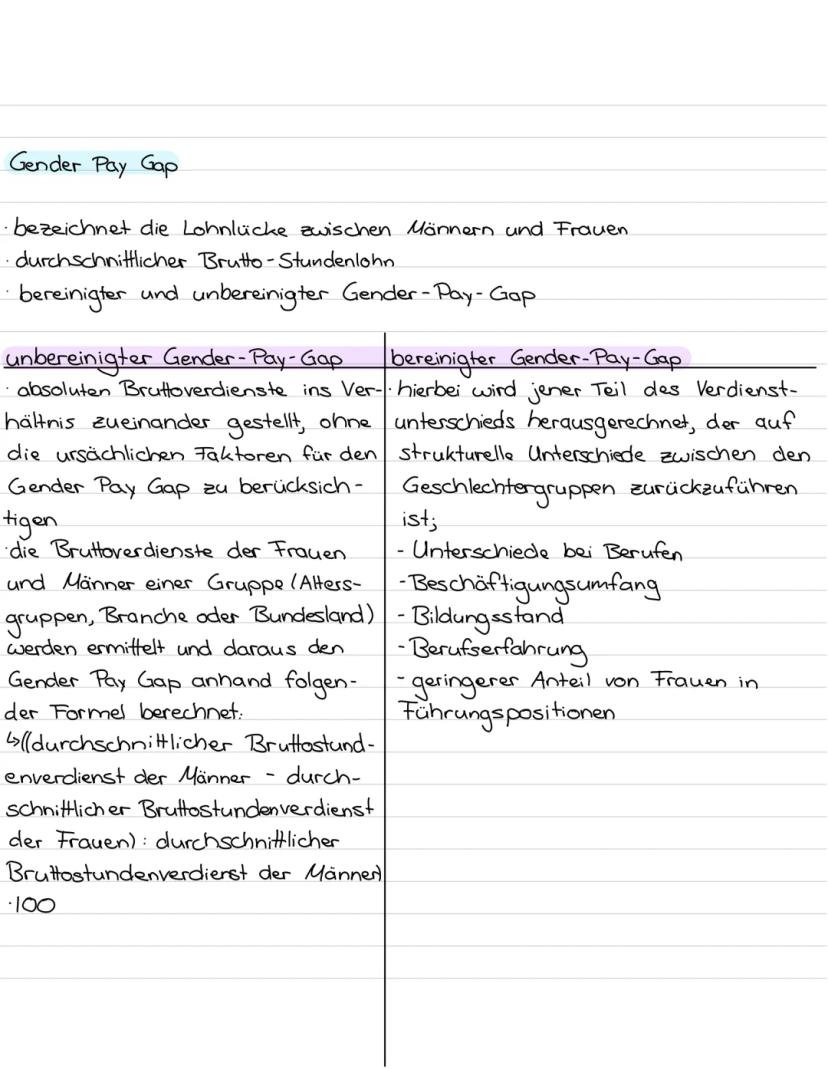 Gender Pay Gap
· bezeichnet die Lohnlücke zwischen Männern und Frauen
· durchschnittlicher Brutto-Stundenlohn
· bereinigter und unbereinigter Gender-Pay-Gap
unbereinigter Gender-Pay-Gap
· absoluten Bruttoverdienste ins Ver-
hältnis zueinander gestellt, ohne
die ursächlichen Faktoren für den
Gender Pay Gap zu berücksich-
tigen
· die Bruttoverdienste der Frauen
und Männer einer Gruppe (Alters-
gruppen, Branche oder Bundesland)
werden ermittelt und daraus den
Gender Pay Gap anhand folgen-
der Formel berechnet:
↳((durchschnittlicher Bruttostund-
enverdienst der Männer - durch-
schnittlicher Bruttostundenverdienst
der Frauen) : durchschnittlicher
Bruttostundenverdienst der Männer)
·100
bereinigter Gender-Pay-Gap
· hierbei wird jener Teil des Verdienst-
unterschieds herausgerechnet, der auf
strukturelle Unterschiede zwischen den
Geschlechtergruppen zurückzuführen
ist;
- Unterschiede bei Berufen
- Beschäftigungsumfang
- Bildungsstand
- Berufserfahrung
- geringerer Anteil von Frauen in
Führungspositionen